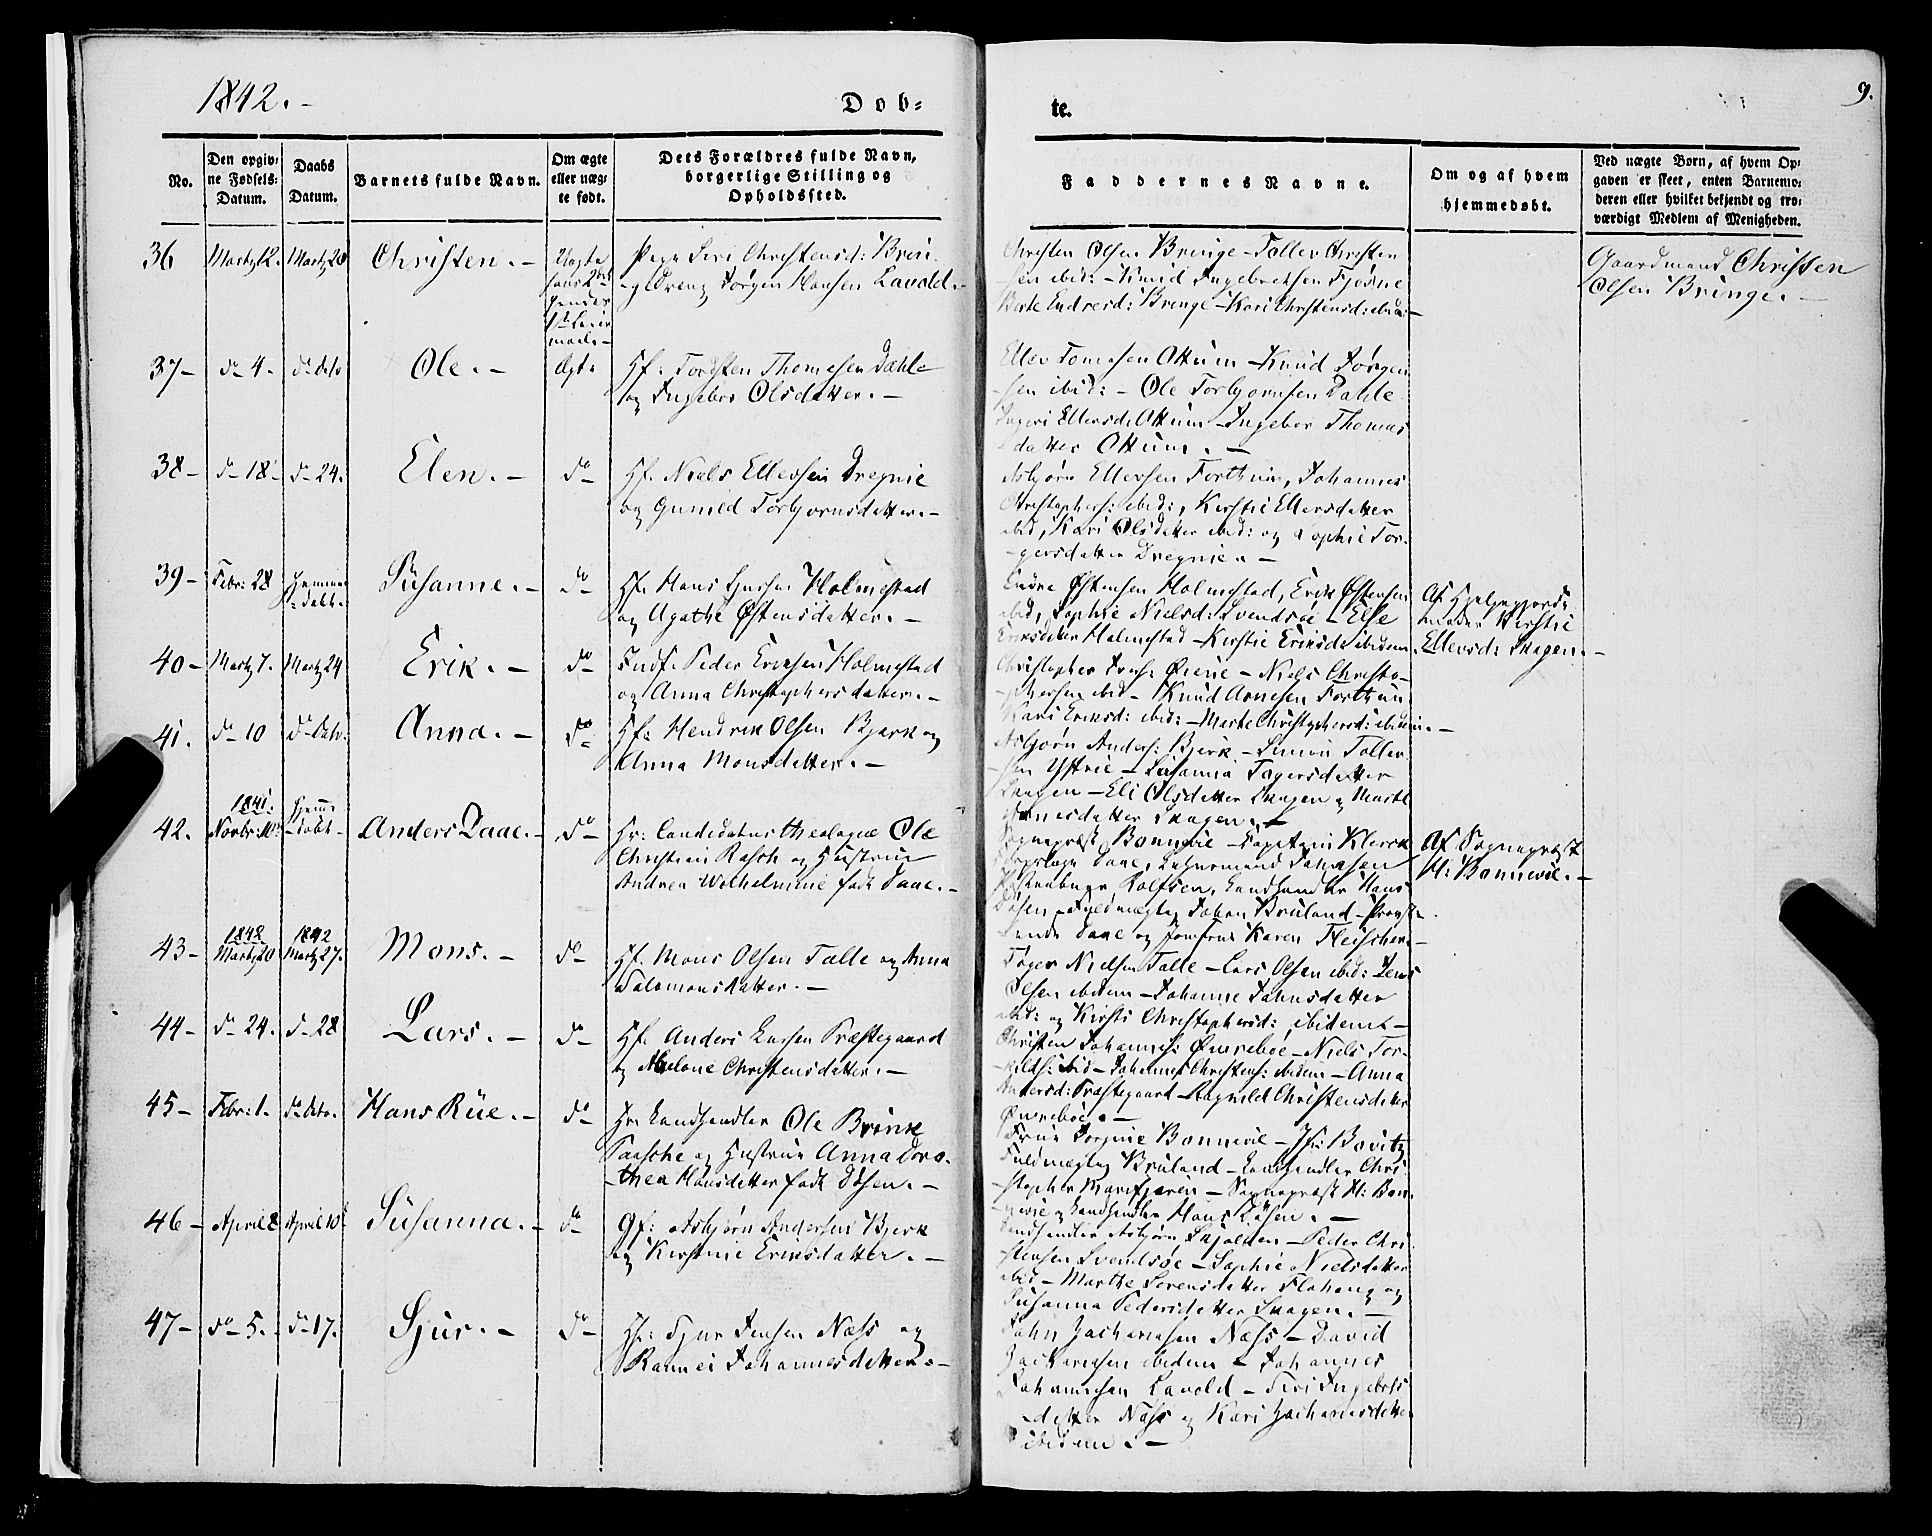 1842.-
Dob-
te.
9.
No.
Den opgiv-
ne Fødsels-
Datum.
Daabs
Datum.
Barnets fulde Navn.
Om ægte
eller uæg-
te født.
Dets Forældres fulde Navn,
borgerlige Stilling og
Opholdssted.
Faddernes Navne.
Om og af hvem
hjemmedøbt.
Ved uægte Børn, af hvem Op-
gaven er skeet, enten Barnemo-
deren eller hvilket bekjendt og tro-
værdigt Medlem af Menigheden.
36
Martz 12.
Martz 20
Christen.-
Uægte
Pige Siri Christensd: Brin-
-ge Dreng Jørgen Hansen Lavold.-
Christen Olsen Bringe - Toller Christen
sen ibid: - Knud Ingebretsen Fjøsne
Berte Endresd: Bringe - Kari Christensd: ibid:-
Gaardmand Christen
Olsen Bringe.-
37-
do 4.
do dato
Ole.-
Ægte
Hf: Torsten Thomesen Dahle
og Ingebor Olsdatter.-
Eller Tomesen Ottum - Knud Jørgen
sen ibid: - Ole Torbjørnsen Dahle
Ingeri Ellersd: Ottum - Ingebor Thomas
datter Ottum.-
38-
do 18-
do 24.
Elen.-
do
Hf. Niels Ellessen Dregnie
og Gunild Torbjørnsdatter.-
Asbjørn Ellersen Forthun, Johannes
Christophers: ibid:, Kirstie Ellersdatter
ibid, Kari Olsdatter ibid: og Sophie Tor-
-gersdatter Dregnie.-
39-
Febr: 28
Hjemme
døbt.
Susanne.-
do
Hf. Hans Holmestad
og Agathe Østensdatter.-
Endre Østensen Holmestad, Erik Østensen
ibid, Sophie Nielsd: Svendsøe - Else
Eriksdatter Holmestad - Kirstie Eriksd: ibidem.
Af
moder Kirstie
Ellersd: Skagen.-
40-
Martz 7.
Martz 24
Erik.-
do
Indf. Peder Eriksen Holmestad
og Anna Christophersdatter.-
Christopher - Niels Christo-
-phersen ibid - Knud Arnesen Forthun
Kari Eriksd: ibid: - Marte Christophersd: ibidem.-
41.
do 10
do dato.
Anna.-
do
Hf: Hendrik Olsen Bjerk og
Anna Monsdatter.-
Asbjørn Anders: Bjerk - Simon Toller
sen Ystrie - Susanna Togersdatter
Skagen - Eli Olsdatter Skagen og Marte
Skagen.-
42.
1841.
Novbr: 10
Hjemme
-døbt-
Anders Daae.-
do
Hr: Candidatus theologiæ Ole
Christian Rasch og Hustrue
Andrea Wilhelmine født Daae.-
Sognepræst Bonnevie - Capitain Klerck
Daae, Johnsen
Rolfsen, Landhandler Hans
Døsen - Fuldmægtig Johan Bruland - Provst-
inde Daae og Jomfrue Karen Fleischer.-
Af Sognepræst
H: Bonnevie.-
43-
1842
Martz 20
1842
Martz 27.
Mons.-
do
Hf. Mons Olsen Talle og Anna
Salomonsdatter.-
Toger Nielsen Talle - Lars Olsen ibid: Jens
Olsen ibidem - Johanne Johnsdatter
ibid: og Kirsti Christophersd: ibidem.-
44-
do 24.
do 28
Lars.-
do
Hf. Anders Larsen Præstegaard
og Malene Christensdatter.-
Christen Johannes: Øvreboe - Niels Tor-
-kilds: ibid - Johannes Christens: ibidem - Anna
Andersd: Præstegaard - Ragnild Christensdatter
Øvreboe.-
45-
Febr: 1.
do dato.
Hans Rüe.-
do
Hr Landhandler Ole Brink
Paasche og Hustrue Anna Doro-
-thea Hansdatter født Døsen.-
Frue Bonnevie - Bovitz
Fuldmægtig Bruland - Landhandler Chri
-stopher Marifjæren - Sognepræst H: Bon-
nevie og Landhandler Hans Døsen.-
46-
April 2
April 10
Susanna.-
do
Gf: Asbjørn Andersen Bjerk
og Kirstine Eriksdatter.-
Landhandler Asbjørn Skjolden - Peder Chri
stensen Svendsøe - Sophie Nielsdatter
ibid - Marthe Sørensdatter Flahoug og
Susanna Pedersdatter Skagen.-
47-
do 5.
do 17.
Sjur.-
do
Hf: Sjur Jensen Næss og
Rannei Johannesdatter.-
John Zachariasen Næss - David
Zachariasen ibidem - Johannes
Johannesen Lavold - Siri Ingebrets
-datter Næss og Kari Zachariasdatter
ibidem.-